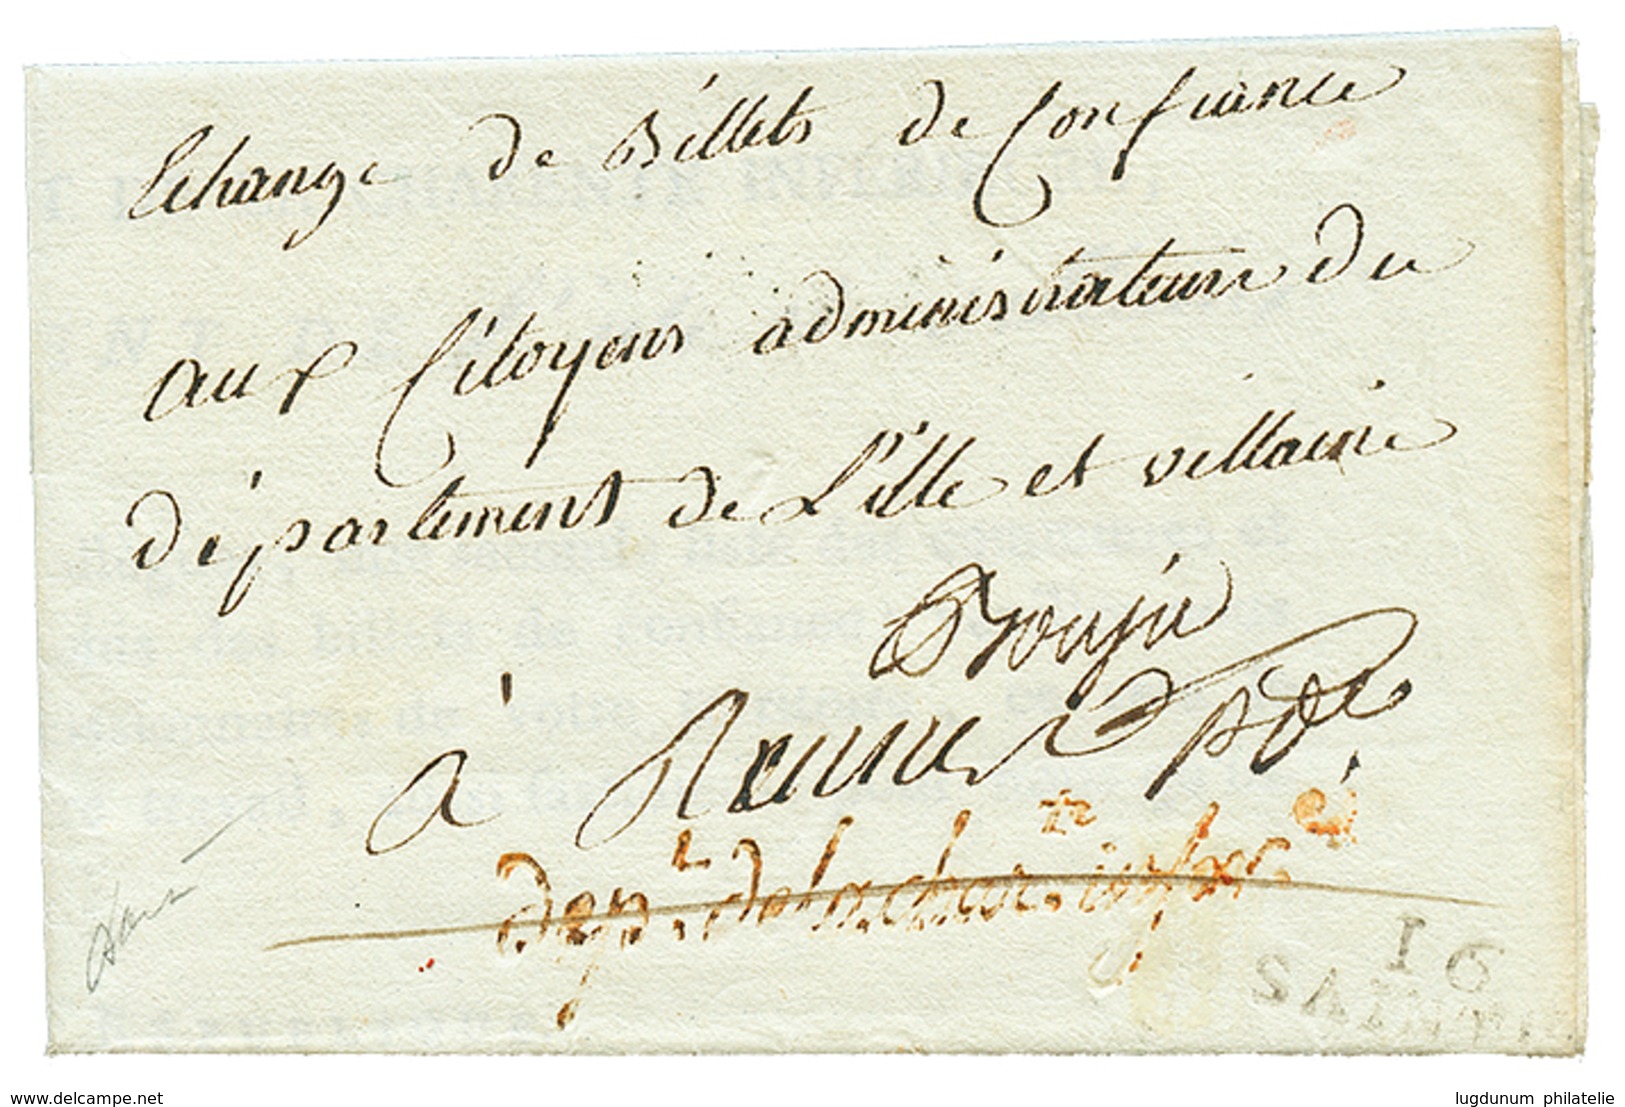 Echange de Billets de Confiance
aux Citoyens administrateurs du
département de L'ille et villaine
à Rennes
dep.t de la char.te infer.e
16
SAINTES
www.delcampe.net
lugdunum philatelie